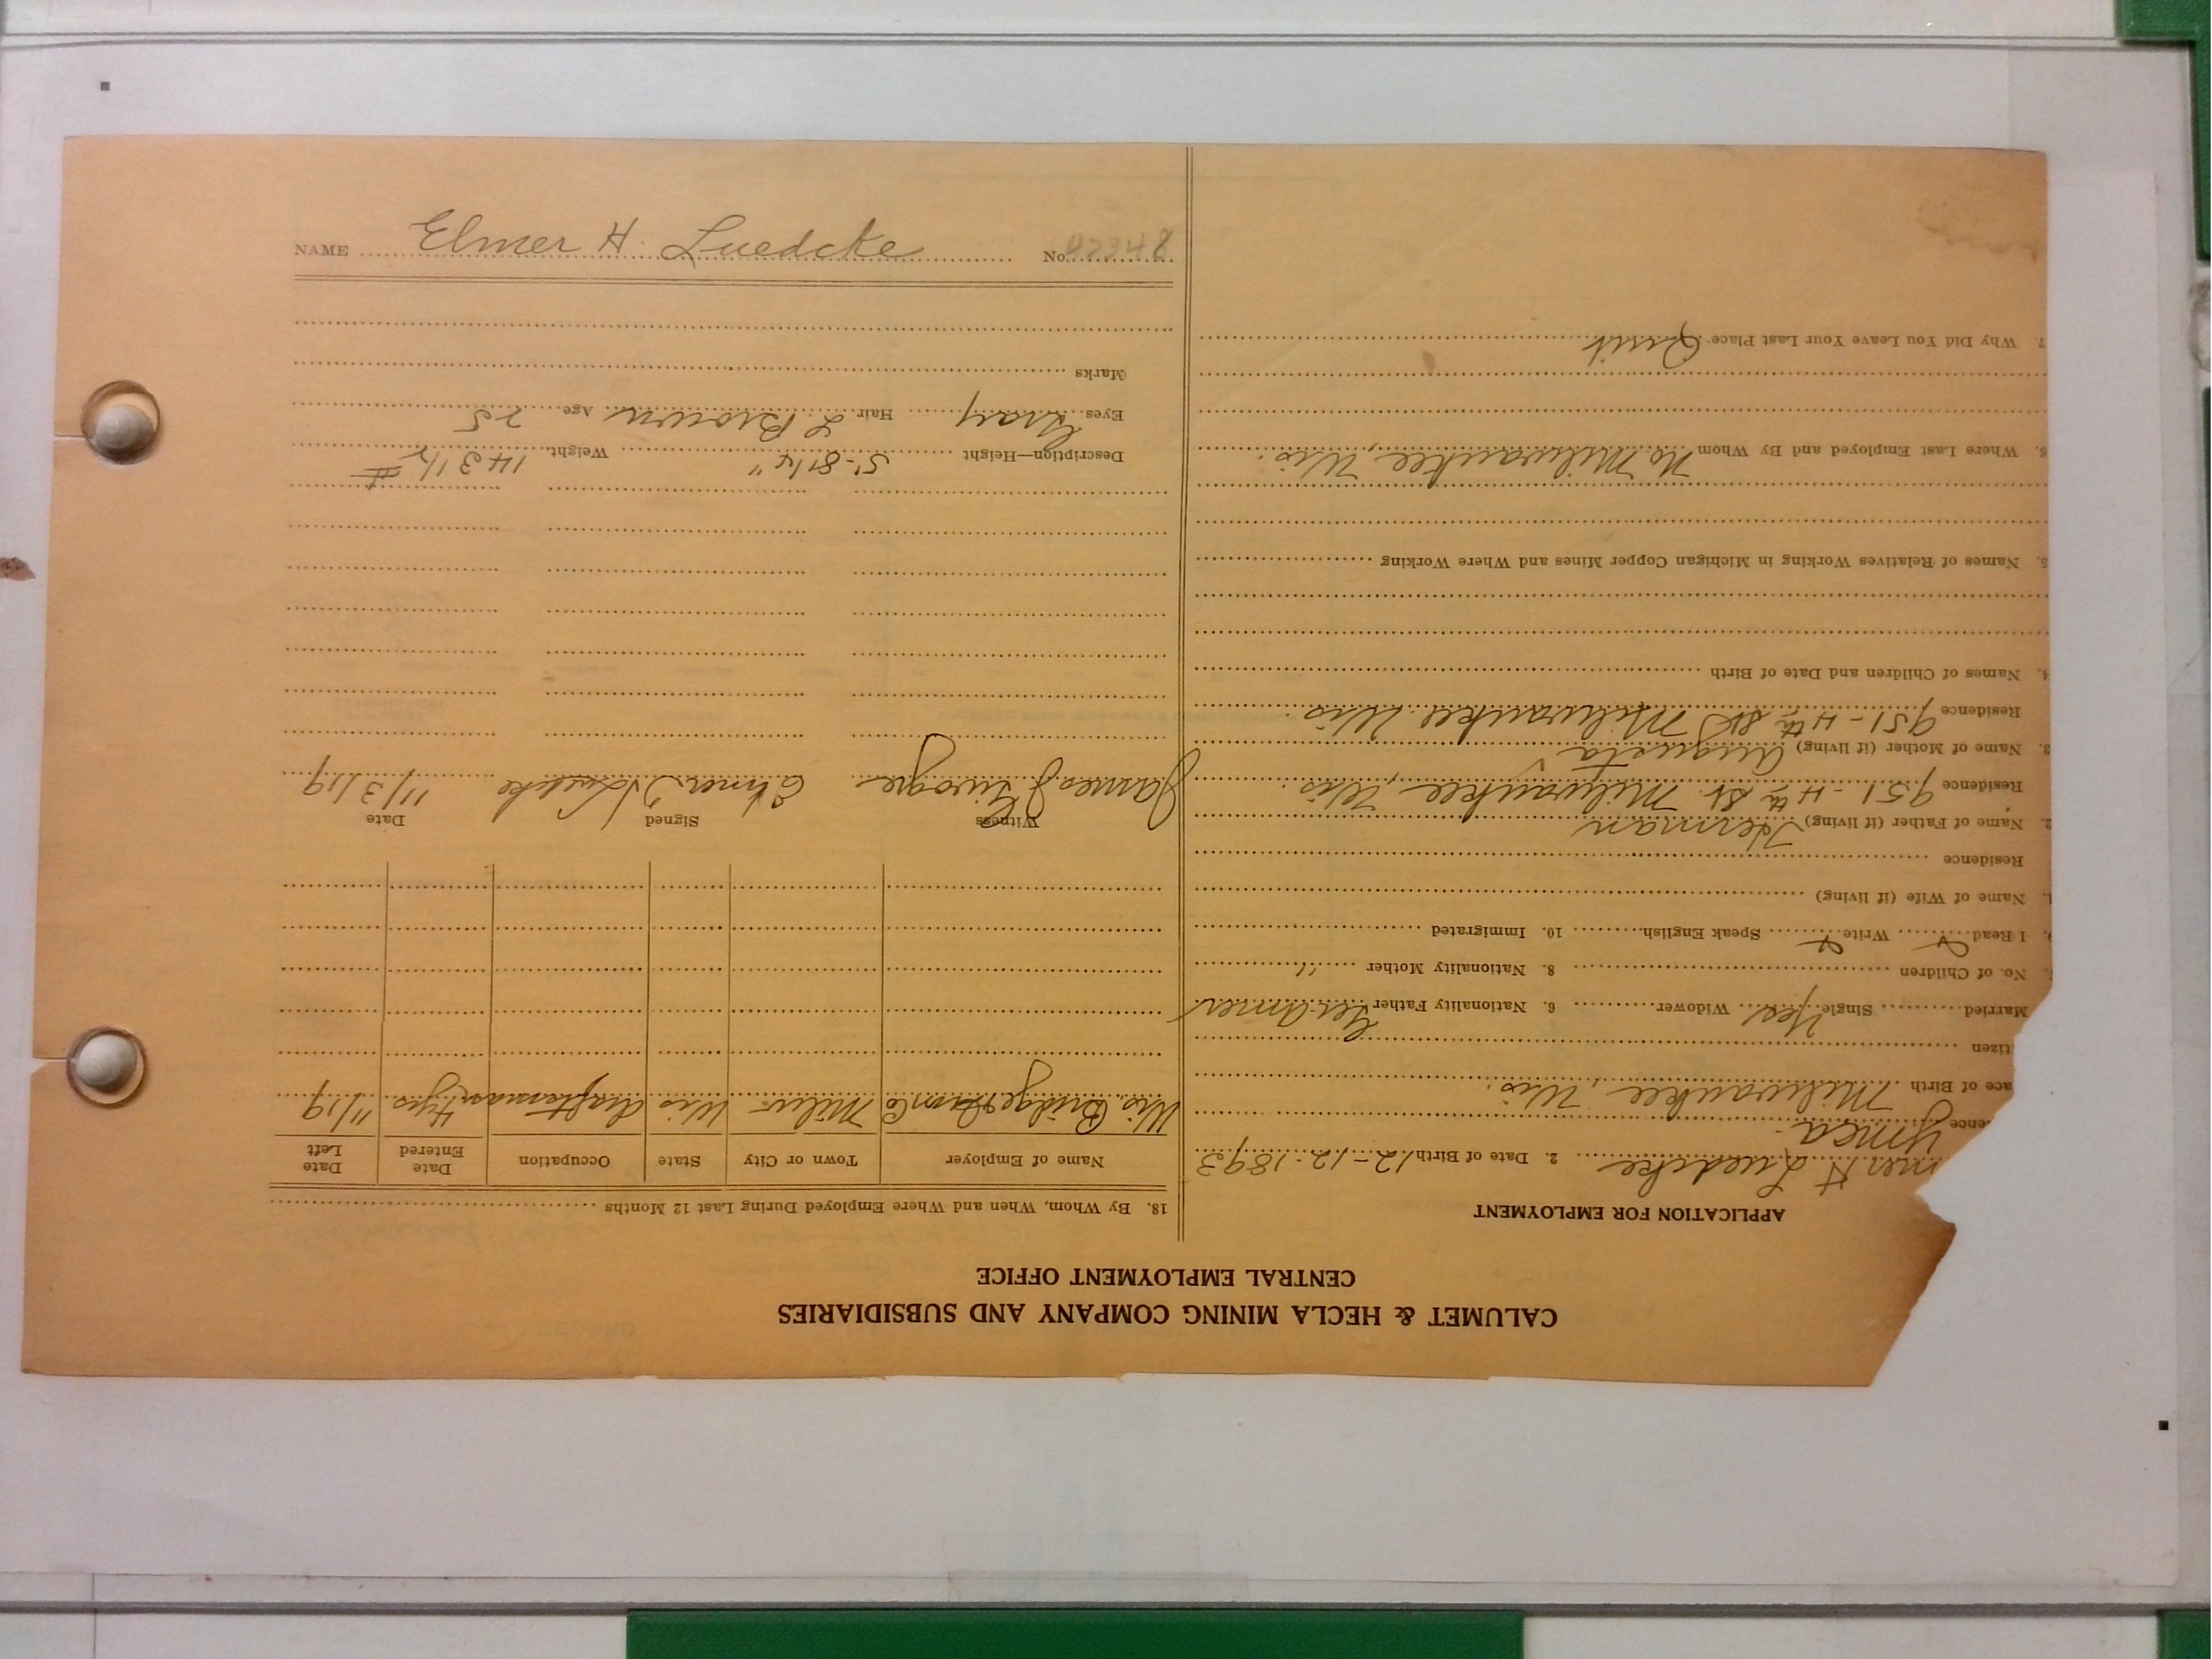 NAME Elmer H. Luedcke No. 92348
CALUMET & HECLA MINING COMPANY AND SUBSIDIARIES
CENTRAL EMPLOYMENT OFFICE
APPLICATION FOR EMPLOYMENT
mer H Luedcke 2. Date of Birth 12-12-1893
ence Ymca
ace of Birth Milwaukee, Wis.
itizen
Married Single Yes Widower 6. Nationality Father Ger. Amer
No. of Children 8. Nationality Mother "
9. I Read Write Speak English 10. Immigrated
1. Name of Wife (if living)
Residence
2. Name of Father (if living) Herman
Residence 951-4th St. Milwaukee, Wis.
3. Name of Mother (if living) Augusta
Residence 951-4th St Milwaukee Wis.
4. Names of Children and Date of Birth
5. Names of Relatives Working in Michigan Copper Mines and Where Working
6. Where Last Employed and By Whom No. Milwaukee, Wis.
7. Why Did You Leave Your Last Place Quit
18. By Whom, When and Where Employed During Last 12 Months
Name of Employer Town or City State Occupation Date Entered Date Left
Wis. Bridge & Iron Co Milw Wis draftsman 4 yrs 11/19
Witness Signed Date
James J Elmer H Luedcke 11/3/19
Description—Height 5'-8 1/4" Weight 143 1/2 #
Eyes Gray Hair L Brown Age 25
Marks